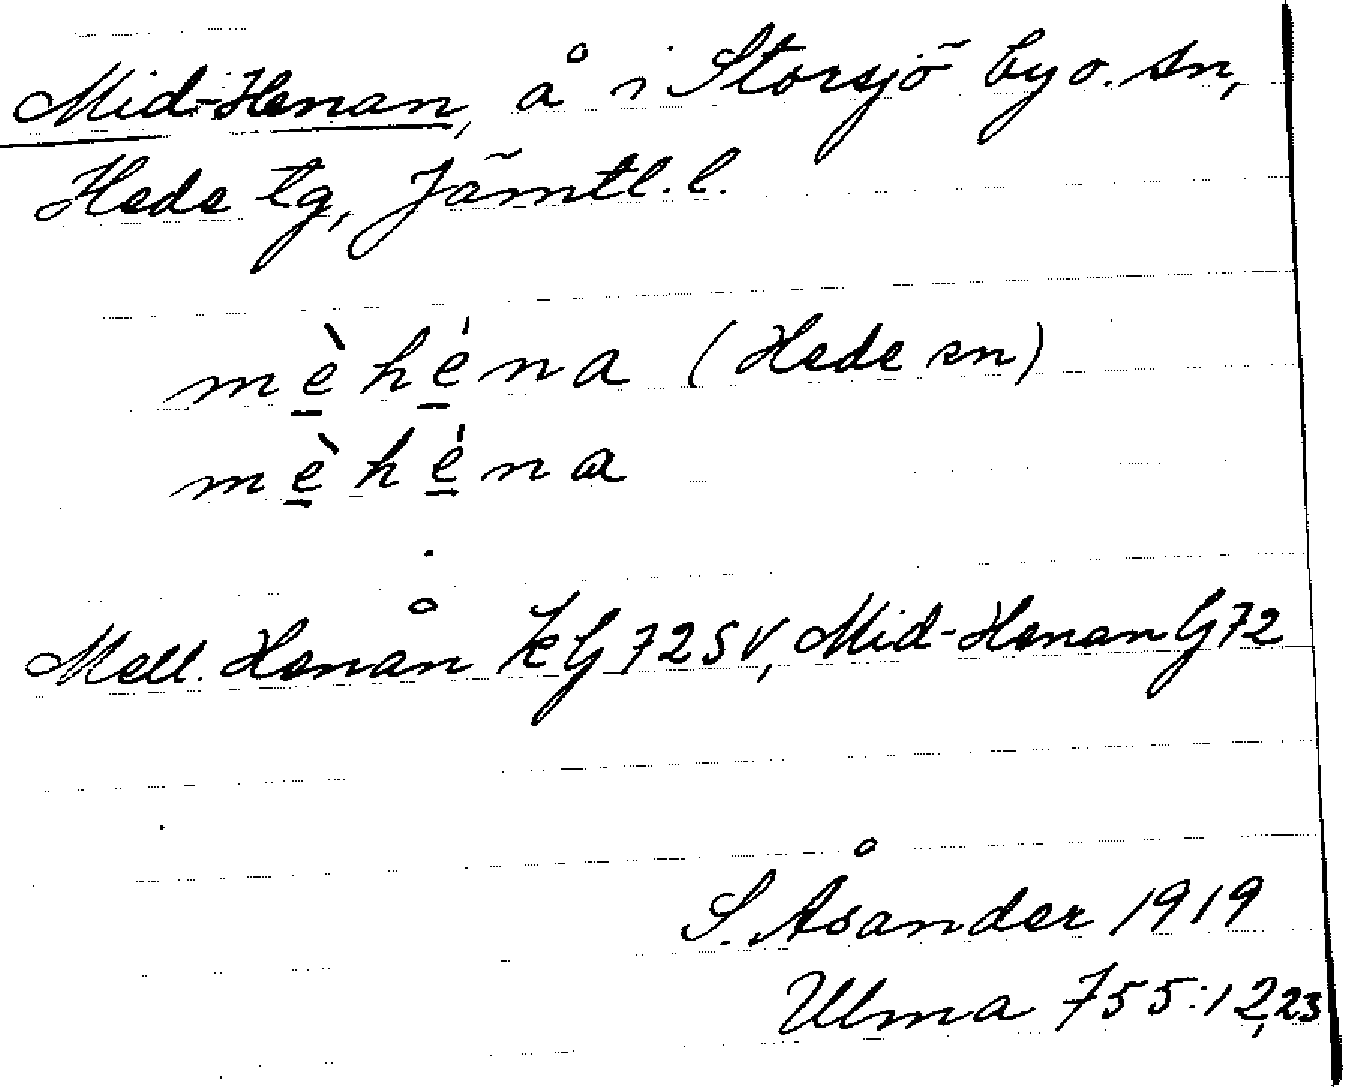 Mid-Henan, å i Storsjö by o. sn,
Hede tg, Jämtl. l.
mè̱hé̱na (Hede sn)
mè̱hé̱na
Mell. Henån KG 72 SV, Mid-Henan G 72
S. Åsander 1919
Ulma 755:12,23